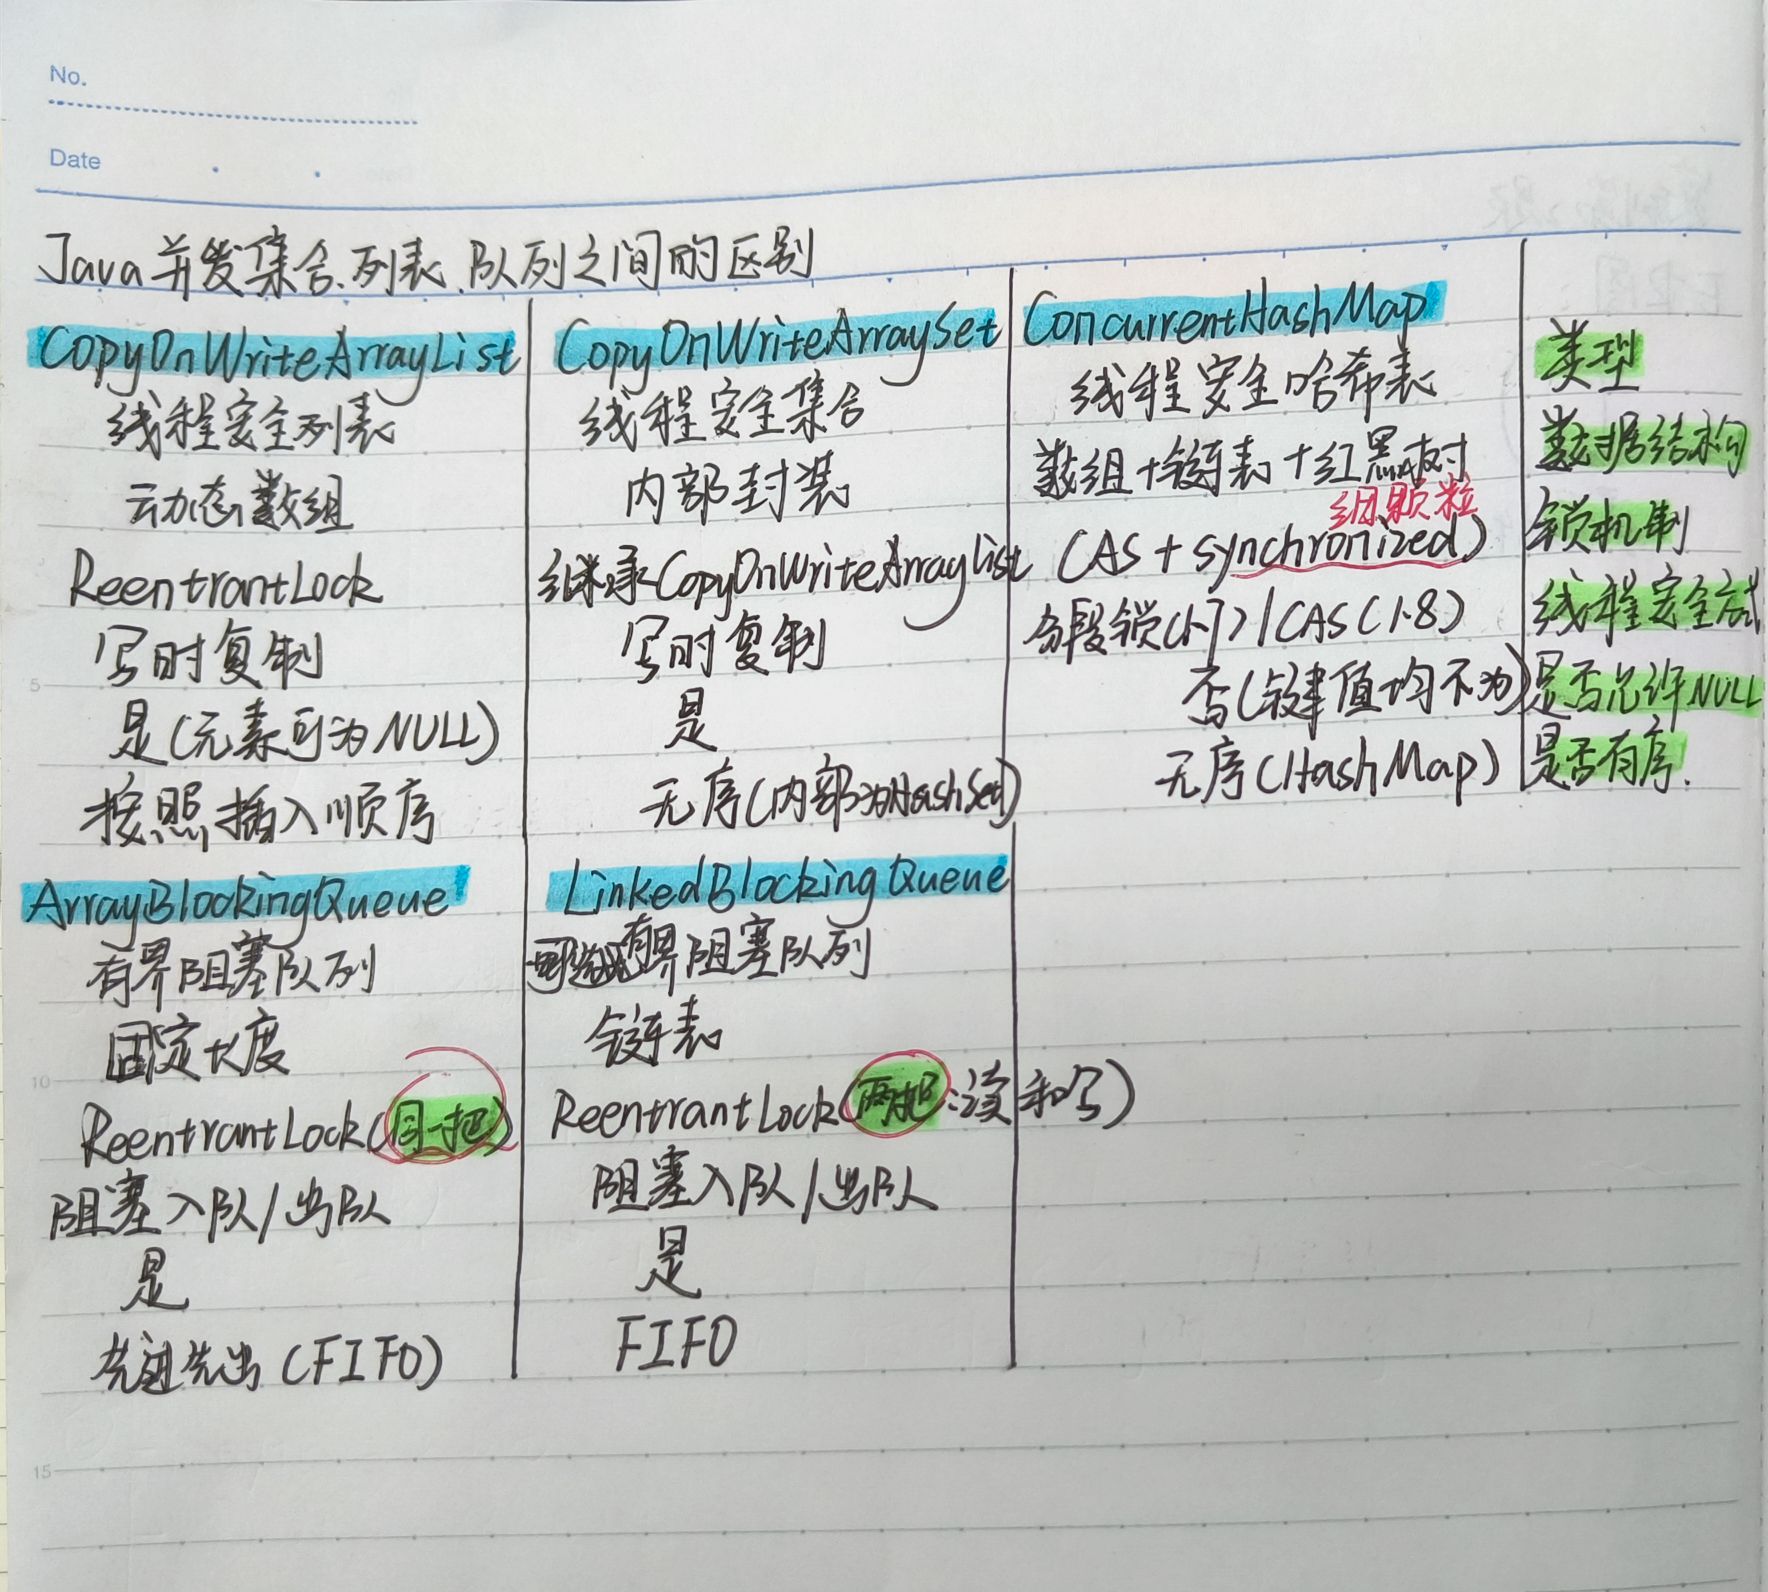 No.
Date
Java并发集合、列表、队列之间的区别
CopyOnWriteArrayList
线程安全列表
动态数组
ReentrantLock
写时复制
是(元素可为NULL)
按照插入顺序
CopyOnWriteArraySet
线程安全集合
内部封装
继承CopyOnWriteArrayList
写时复制
是
无序(内部为HashSet)
ConcurrentHashMap
线程安全哈希表
数组+链表+红黑树
细颗粒
CAS + synchronized)
分段锁(1.7)/CAS(1.8)
否(键值均不为)
无序(HashMap)
类型
数据结构
锁机制
线程安全方式
是否允许NULL
是否有序.
ArrayBlockingQueue
有界阻塞队列
固定长度
ReentrantLock(同一把)
阻塞入队/出队
是
先进先出(FIFO)
LinkedBlockingQueue
有界阻塞队列
链表
ReentrantLock(两把:读和写)
阻塞入队/出队
是
FIFO
5
10
15